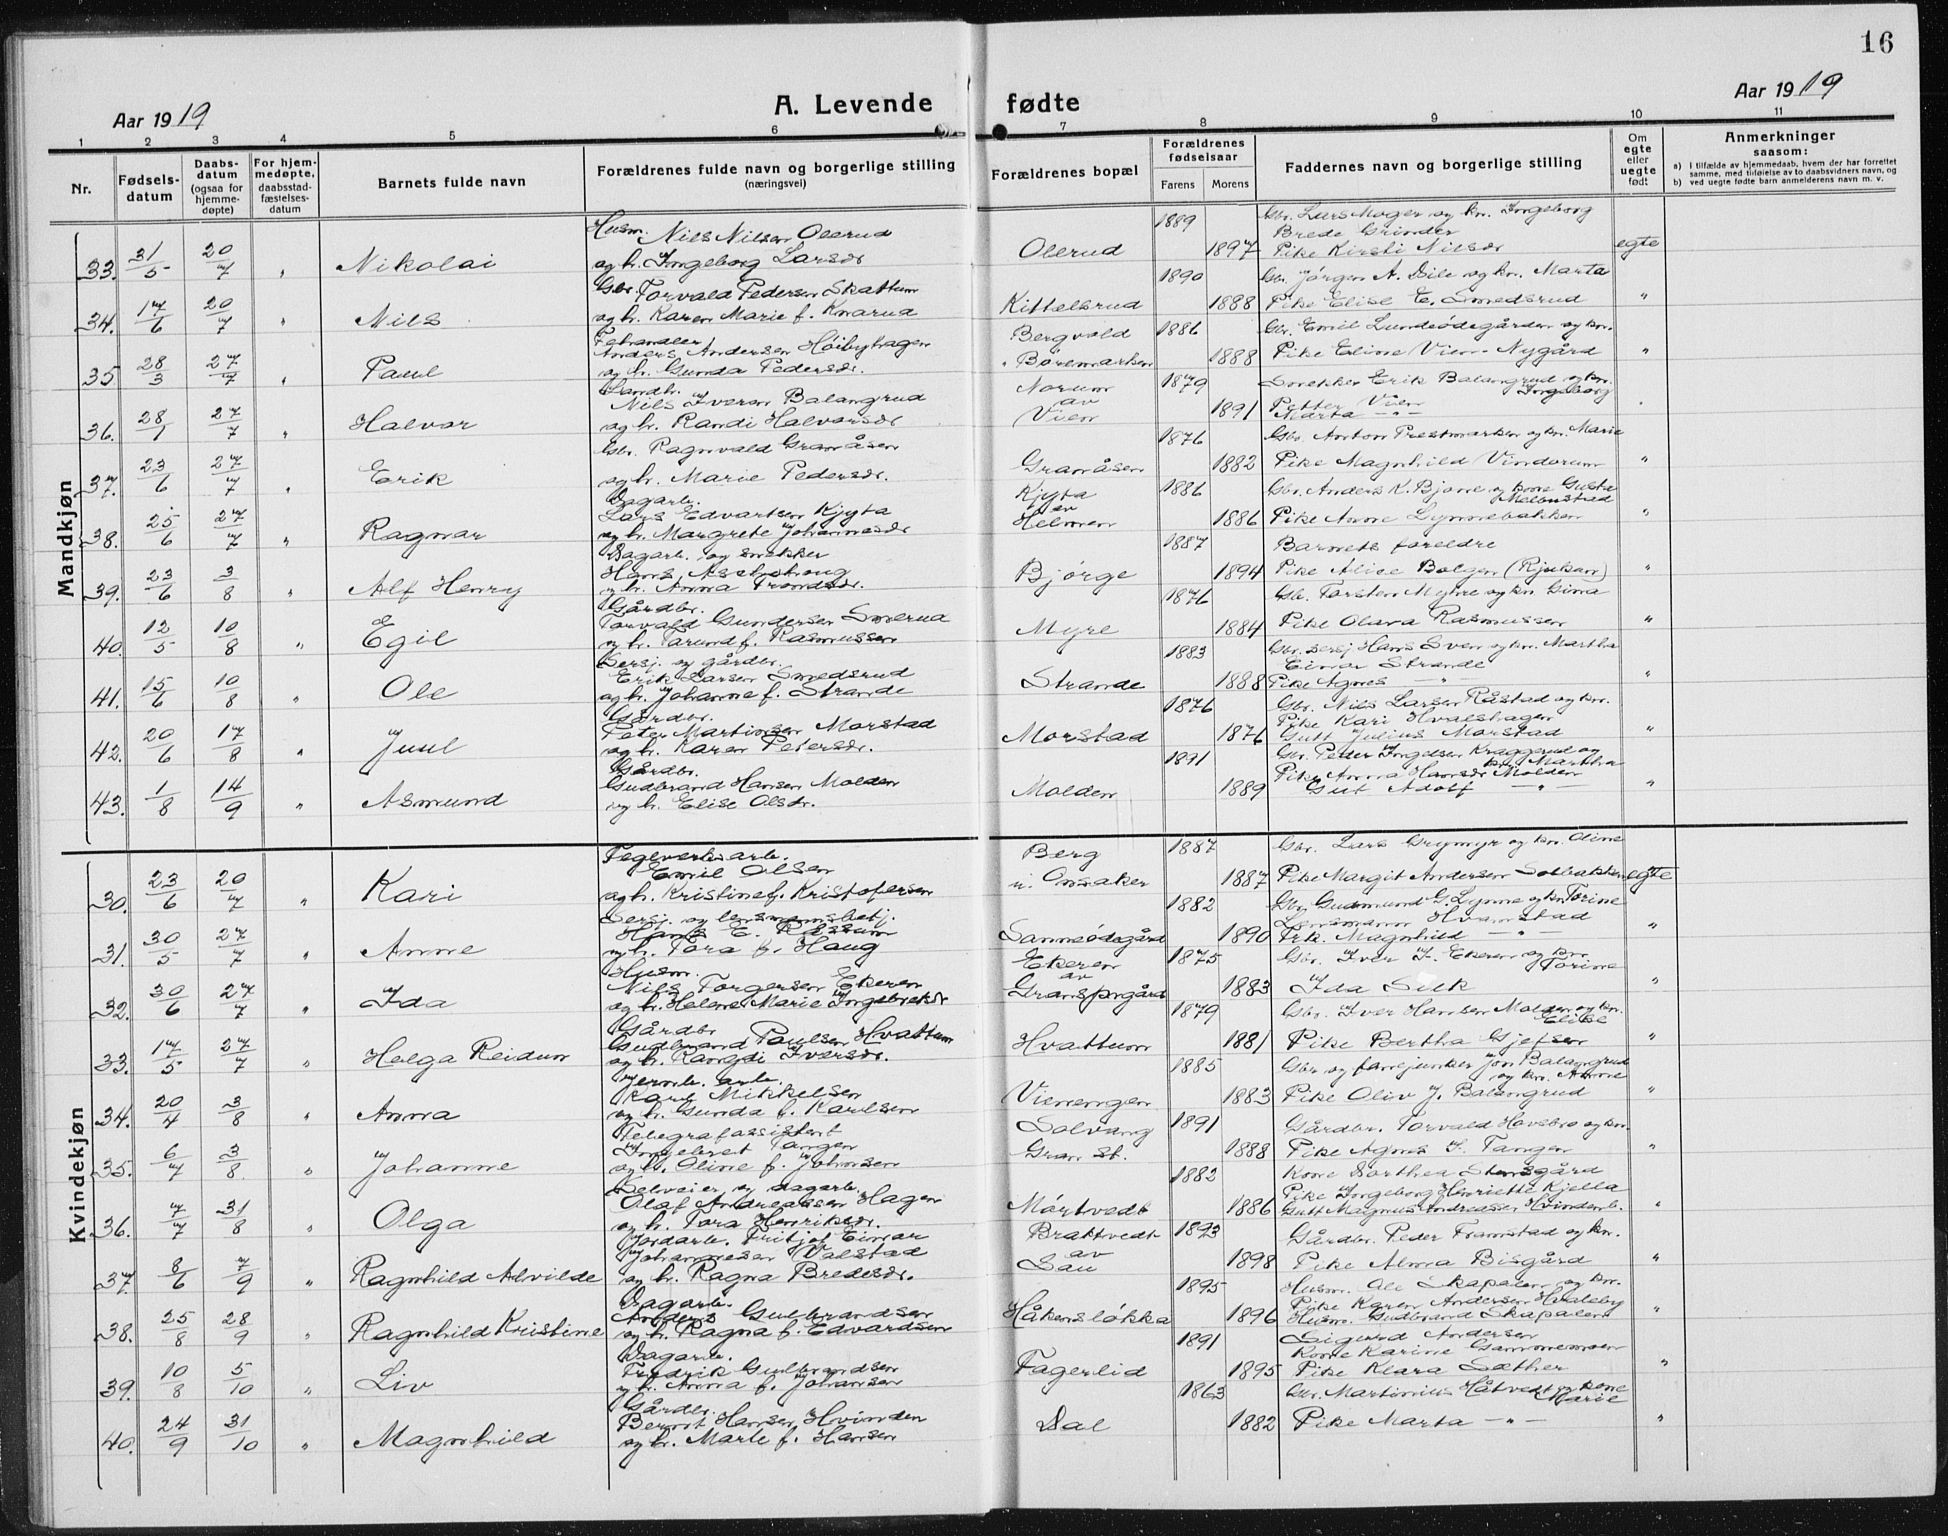 16
Aar 1919
A. Levende fødte
Aar 1919
1 2 3 4 5 6 7 8 9 10 11
Nr.
Fødsels-
datum
Daabs-
datum
(ogsaa for
hjemme-
døpte)
For hjem-
medøpte,
daabsstad-
fæstelses-
datum
Barnets fulde navn
Forældrenes fulde navn og borgerlige stilling
(næringsvei)
Forældrenes bopæl
Forældrenes
fødselsaar
Farens Morens
Faddernes navn og borgerlige stilling
Om
egte
eller
uegte
født
Anmerkninger
saasom:
a) I tilfælde av hjemmedaab, hvem der har forrettet
samme, med tilføielse av to daabsvidners navn, og
b) ved uegte fødte barn anmelderens navn m. v.
Mandkjøn
33. 31/5 20/7 " Nikolai
Husm. Nils Nilsen Olerud
og h. Ingeborg Larsdr.
Olerud 1889 1897
Gbr. Lars Moger og kn. Ingeborg
Brede Grinder
Pike Kirsti Nilsdr
egte
34. 17/6 20/7 " Nils
Gbr. Torvald Pedersen Skattum
og h. Karen Marie f. Knarud
Kittelsrud 1890 1888
Gbr. Jörgen A. Dile og kn. Marta
Pike Elise E. Smedsrud
"
35 28/3 27/7 " Paul
Fehandler
Anders Andersen Höibyhagen
og h. Gunda Pedersdr.
Bergvold
Böremarken 1886 1888
Gbr. Emil Lundeödegården og kn.
Pike Eline Vien-Nygård
"
36. 28/1 27/7 " Halvar
Landbr.
Nils Iversen Balangrud
og h. Randi Halvorsdr
Norum
av
Vien 1879 1891
Snekker Erik Balangrud og kn.
Ingeborg
Petter Vien
Marta - " -
37. 23/6 27/7 " Erik
Gbr. Ragnvald Granåsen
og h. Marie Pedersdr.
Granåsen 1876 1882
Gbr. Anton Prestmarken og kn. Marie
Pike Magnhild Vindorum
"
38. 25/6 27/7 " Ragnar
Dagarb.
Lars Edvartsen Kjyta
og h. Margrete Johannesdr
Kjyta
av
Helmen 1886 1886
Gbr. Anders K. Bjone og kone Gusta
Melbustad
Pike Anne Lynnebakken
"
39. 23/6 3/8 " Alf Henry
Dagarb. og snekker
og h. Anna Trondsdr.
Bjørge 1887 1894
Barnets foreldre
Pike Alise Bolgen (Rjukan)
"
40. 12/5 10/8 " Egil
Gårdbr.
Torvald Gundersen Smerud
og h. Torund f. Rasmussen
Myre 1876 1884
Gb. Torsten Myhre og kn Gina
Pike Olava Rasmussen
"
41. 15/6 10/8 " Ole
Sersj. og gårdbr.
Erik Larsen Smedsrud
og h. Johanne f. Strande
Strande 1883 1888
Gbr. sersj Hans Sven og kn. Martha
Einar Strande
Pike Agnes - " -
"
42. 20/6 17/8 " Juul
Gårdbr.
Peter Martinsen Morstad
og h. Karen Petersdr.
Morstad 1876 1876
Gbr. Nils Larsen Råstad og kn.
Pike Kari Hvalshagen
Gutt Julius Morstad
"
43. 1/8 14/9 " Asmund
Gårdbr.
Gudbrand Hansen Molden
og h. Elise Olsdr.
Molden 1891 1889
Gbr. Peder Ingelsen Kraggerud og
kn. Martha
Pike Anna Hansdr Molden
Gut Adolf - " -
"
Kvindekjøn
30. 23/6 20/7 " Kari
Teglverksarb.
Emil Olsen
og h. Kristine f. Kristofersen
Berg
u. Onsaker 1887 1887
Gbr. Lars Grymyr og kn. Oline
Pike Margit Andersen Solbakken
egte
31. 30/5 27/7 " Anne
Sersj. og lensmannsbetj.
Hans E. Råssum
og h. Tora f. Haug
Sanneödegård 1882 1890
Gbr. Gudmund G. Lynne og kn Torine
Lensmann Hvamstad
Frk. Magnhild - " -
"
32. 30/6 27/7 " Ida
Husm.
Nils Torgersen Ekeren
og h. Helene Marie Ingebretsdr
Ekeren
av
Gransprgård 1875 1883
Gbr. Iver I. Ekeren og kn.
Torine
Ida Lilk
"
33. 17/5 27/7 " Helga Reidun
Gårdbr
Gudbrand Paulsen Hvattum
og h. Rangdi Iversdr.
Hvattum 1879 1881
Gbr. Iver Hansen Molden og kn.
Elise
Pike Bertha Gjefsen
"
34. 20/4 3/8 " Anna
Jernb. arb.
Karl Mikkelsen
og h. Gunda f. Karlsen
Vienengen 1885 1883
Gbr og fanejunker Jon Balangrud
og kn. Anne
Pike Oliv J. Balangrud
"
35. 6/7 3/8 " Johanne
Telegrafassistent
Ingebret Tangen
og h. Oline f. Johnsen
Solvang
Gran st. 1891 1888
Gårdbr. Torvald Hovsbro og kn.
Pike Agnes I. Tangen
"
36. 7/7 31/8 " Olga
Selveier og dagarb.
Olaf Andreassen Hagen
og h. Tora Henriksdr.
Mørtvedt 1882 1886
Kone Dorthea Stensgård
Pike Ingeborg Henriette Kjella
Gutt Magnus Andreassen Hvindenb.
"
37. 8/6 7/9 " Ragnhild Alvilde
Jordarb. Fritjof Einar
Johannesen Valstad
og h. Ragna Bredesdr.
Brattvedt
av
Sau 1893 1898
Gårdbr. Peder Framstad og kn.
Pike Alma Bisgård
"
38. 25/8 28/9 " Ragnhild Kristine
Dagarb.
Anders Gulbrandsen
og h. Ragna f. Edvardsen
Håkensløkka 1895 1896
Husm. Ole Skapalen og kn.
Pike Karen Andersen Hvaleby
Husm. Gudbrand Skapalen
"
39. 10/8 5/10 " Liv
Dagarb.
Fredrik Gulbrandsen
og h. Anna f. Johansen
Fagerlid 1891 1895
Sigurd Andersen
Kone Karine Gammemoen
Pike Klara Sæther
"
40. 24/9 31/10 " Magnhild
Gårdbr.
Bernt Hansen Hvinden
og h. Marte f. Hansen
Dal 1863 1882
Gbr. Martinius Håtvedt og kone
Marie
Pike Marta - " -
"